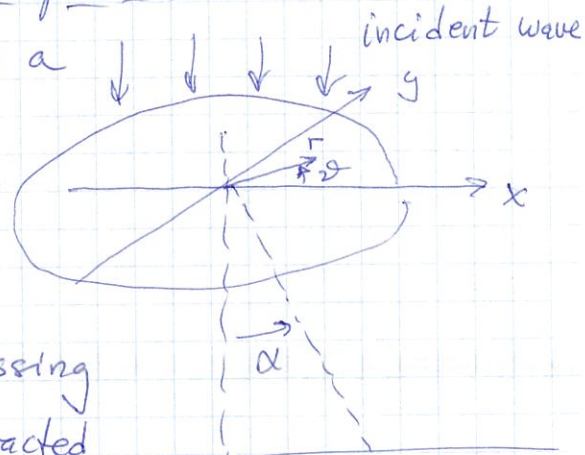 incident wave
a
y
r
ϑ
x
α
ssing
acted